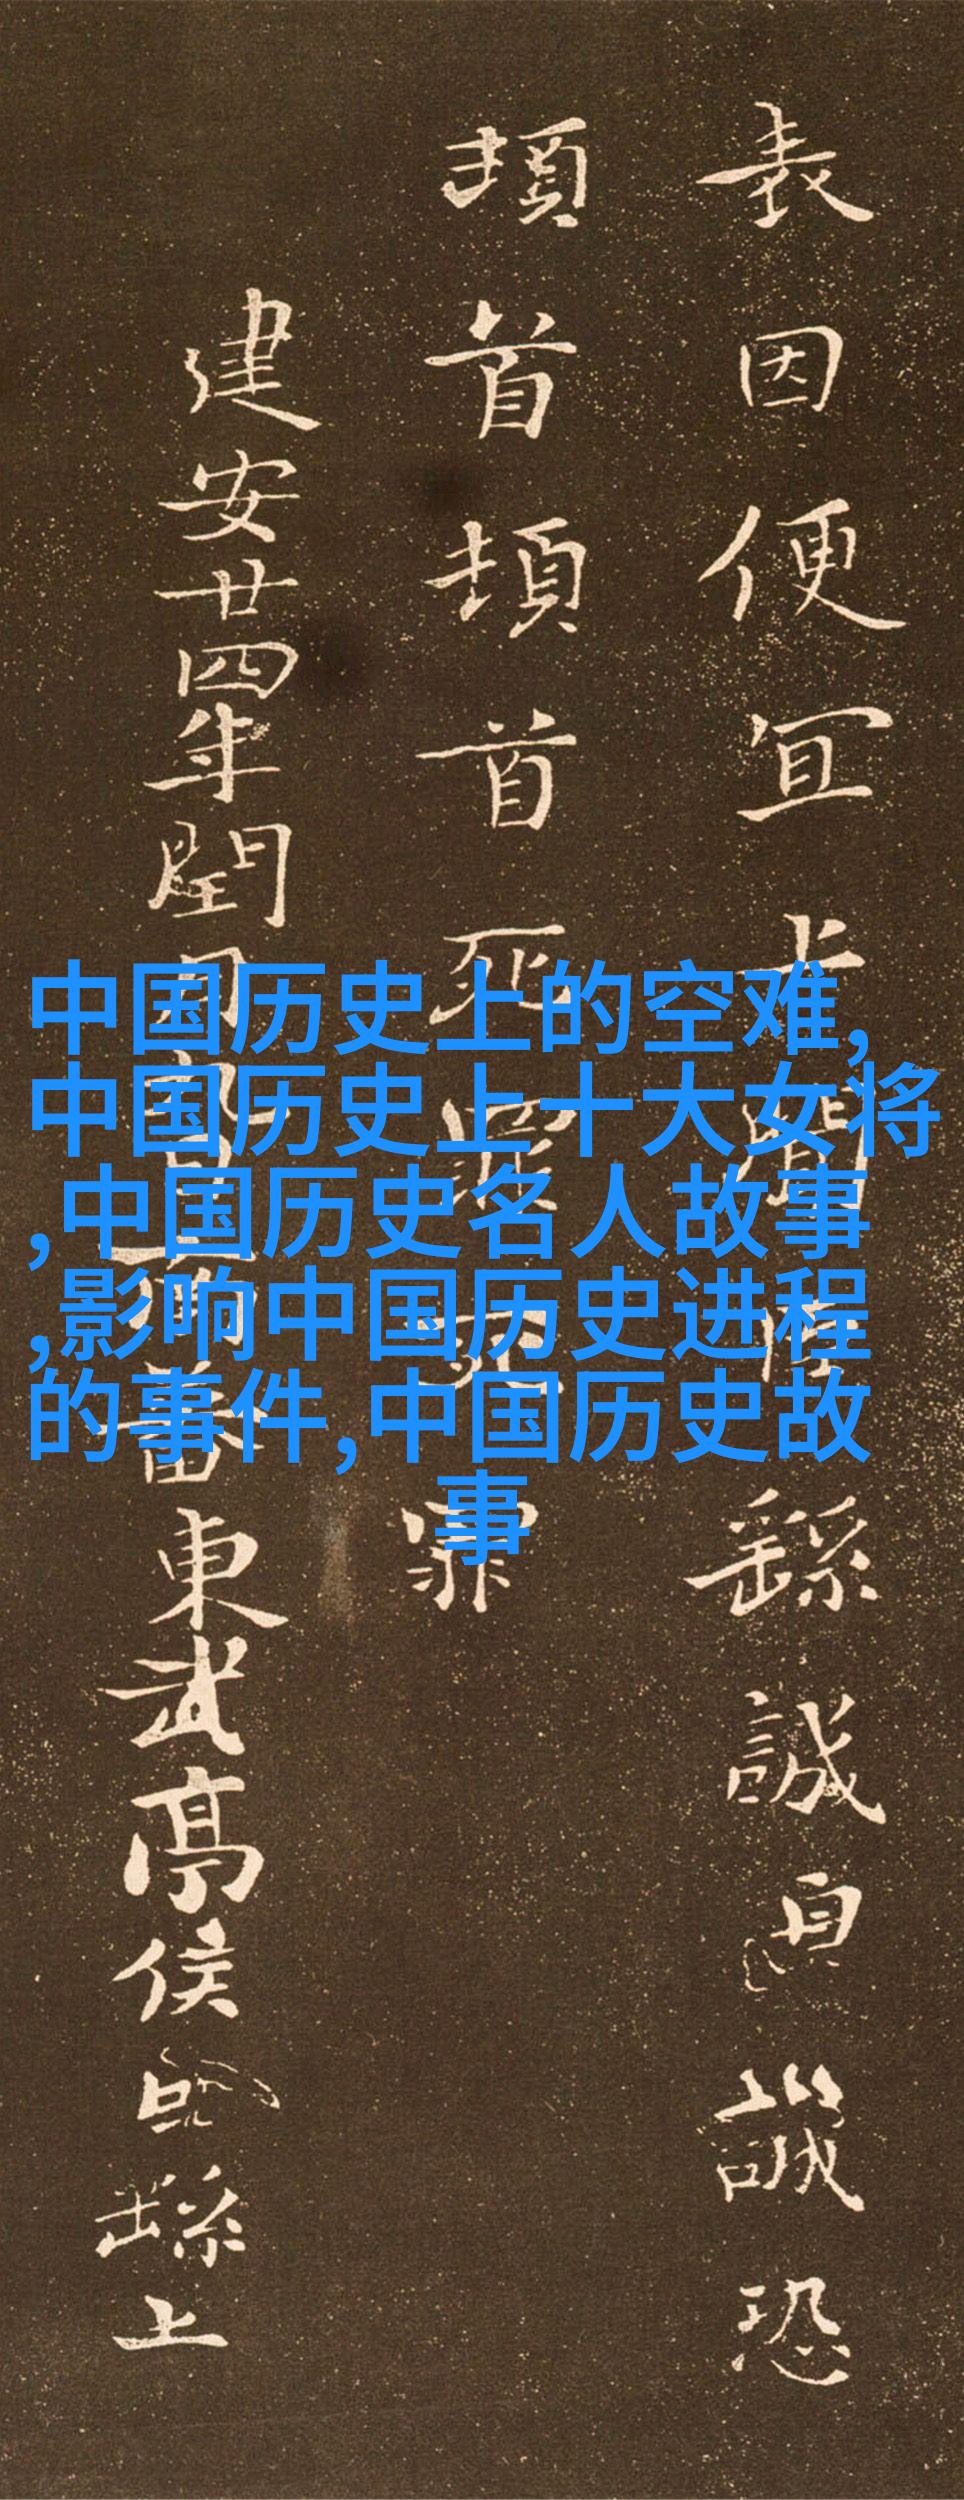 中国历史上的空难,
中国历史上十大女将
,中国历史名人故事
,影响中国历史进程
的事件,中国历史故
事
表因便宜上聞臣繇誠誠恐
頓首頓首死罪死罪
建安廿四年閏月九日南蕃東武亭侯臣繇上